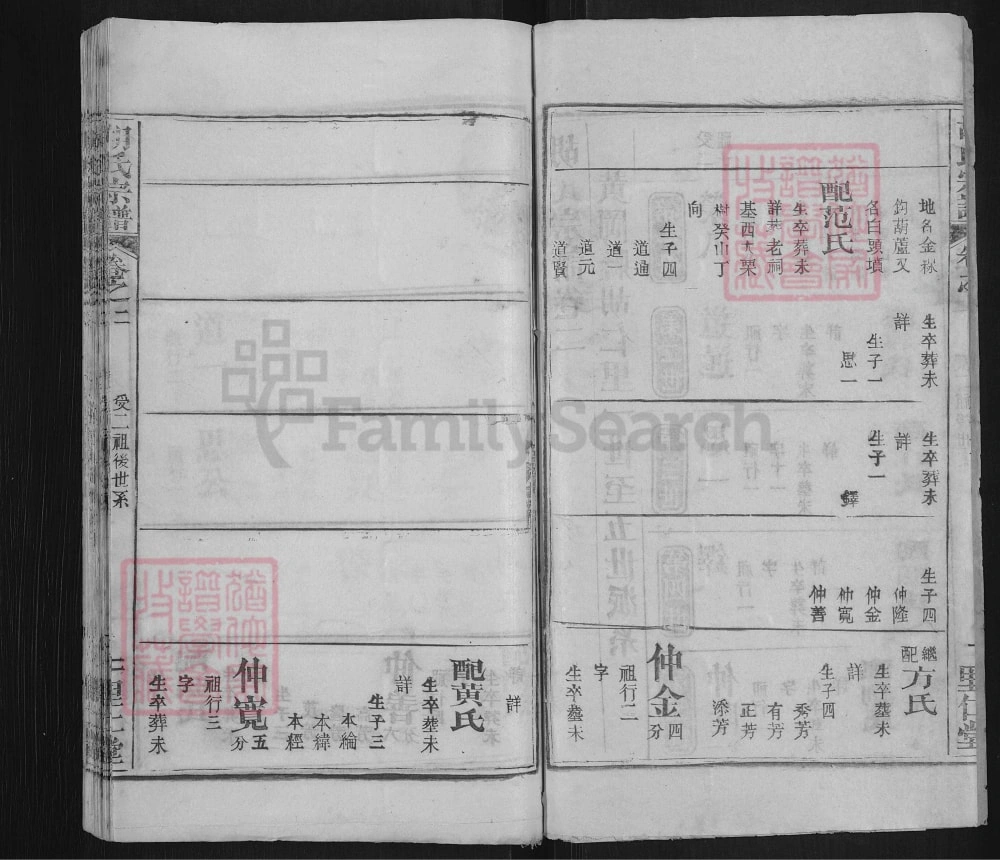 地名金稼
鈎葫蘆叉
名白頭墳
配范氏
生卒葬未
詳葬老祠
基西大栗
樹癸山丁
向
生子四
道通
道一
道元
道賢
生卒葬未
詳
生子一
思一
生卒葬未
詳
生子一
鐸
生子四
仲隆
仲金
仲寬
仲善
繼配方氏
生卒塟未
詳
生子四
秀芳
有芳
正芳
添芳
仲金四分
祖行二
字
生卒塟未
詳
配黄氏
生卒塟未
詳
生子三
本綸
本緯
本經
仲寬五分
祖行三
字
生卒葬未
胡氏宗譜
卷之二
受二祖後世系
FamilySearch